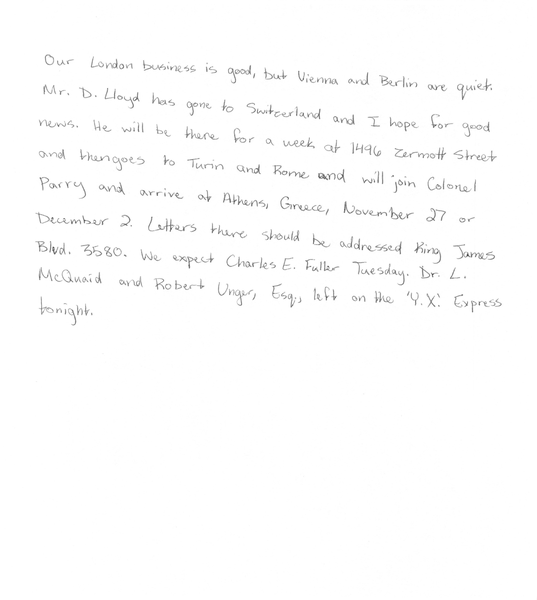 Our London business is good, but Vienna and Berlin are quiet.
Mr. D. Lloyd has gone to Switzerland and I hope for good
news. He will be there for a week at 1496 Zermott Street
and then goes to Turin and Rome and will join Colonel
Parry and arrive at Athens, Greece, November 27 or
December 2. Letters there should be addressed King James
Blvd. 3580. We expect Charles E. Fuller Tuesday. Dr. L.
McQuaid and Robert Unger, Esq., left on the 'Y.X.' Express
tonight.